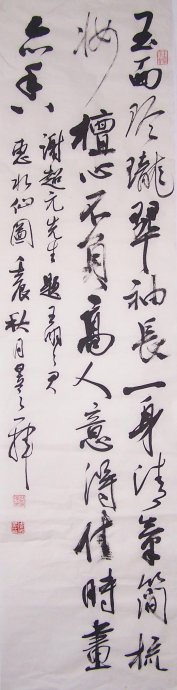 玉面玲瓏翠袖長一身清氣簡梳
妝檀心不負高人意得付時畫
亦香
謝超元先生題王明之君
惠水仙圖壬辰秋月